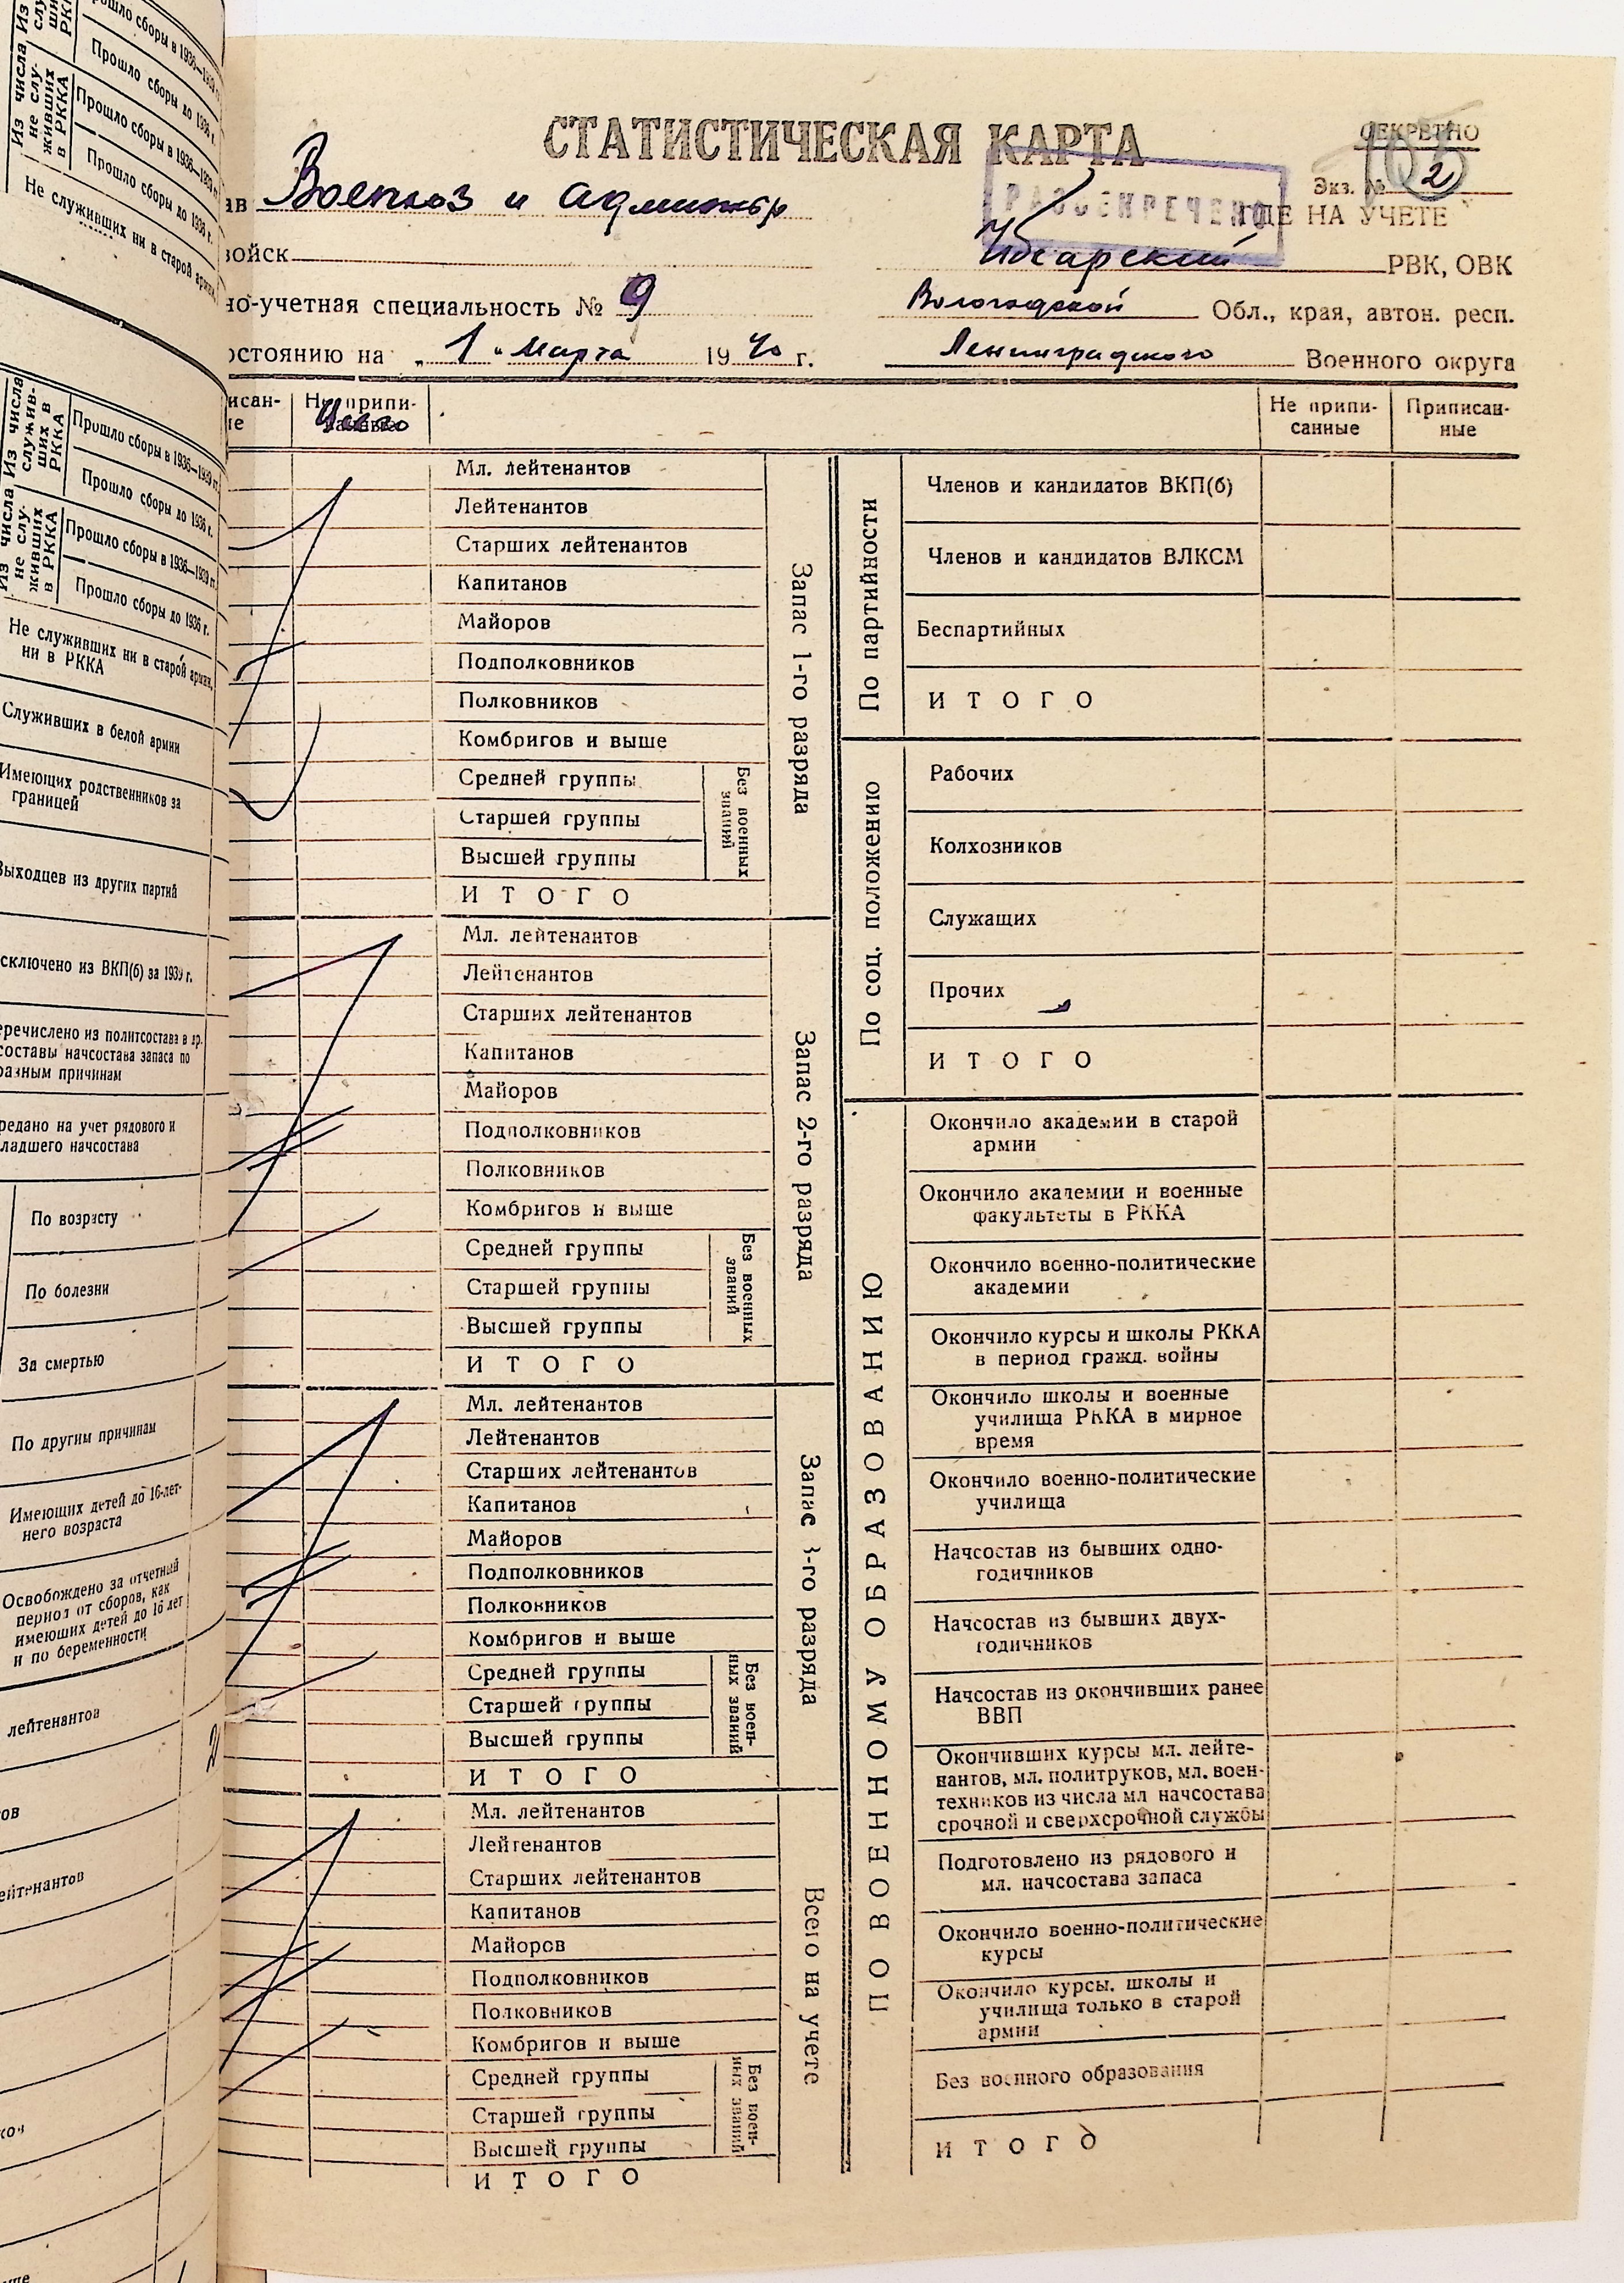 СТАТИСТИЧЕСКАЯ КАРТА
СЕКРЕТНО
Экз. № 2
РАССЕКРЕЧЕНО
ГДЕ НА УЧЕТЕ
ав Военхоз и админ
войск
РВК, ОВК
но-учетная специальность № 9
Вологодской Обл., края, автон. респ.
остоянию на „1" Марта 1940 г.
Ленинградского Военного округа
исан-
ие
Не припи-
Мл. лейтенантов
Лейтенантов
Старших лейтенантов
Капитанов
Майоров
Подполковников
Полковников
Комбригов и выше
Средней группы
Старшей группы
Высшей группы
Без военных
званий
ИТОГО
Запас 1-го разряда
Мл. лейтенантов
Лейтенантов
Старших лейтенантов
Капитанов
Майоров
Подполковников
Полковников
Комбригов и выше
Средней группы
Старшей группы
Высшей группы
Без военных
званий
ИТОГО
Запас 2-го разряда
Мл. лейтенантов
Лейтенантов
Старших лейтенантов
Капитанов
Майоров
Подполковников
Полковников
Комбригов и выше
Средней группы
Старшей группы
Высшей группы
Без воен-
ных званий
ИТОГО
Запас 3-го разряда
Мл. лейтенантов
Лейтенантов
Старших лейтенантов
Капитанов
Майоров
Подполковников
Полковников
Комбригов и выше
Средней группы
Старшей группы
Высшей группы
Без воен-
ных званий
ИТОГО
Всего на учете
Не припи-
санные
Приписан-
ные
По партийности
Членов и кандидатов ВКП(б)
Членов и кандидатов ВЛКСМ
Беспартийных
ИТОГО
По соц. положению
Рабочих
Колхозников
Служащих
Прочих
ИТОГО
ПО ВОЕННОМУ ОБРАЗОВАНИЮ
Окончило академии в старой
армии
Окончило академии и военные
факультеты в РККА
Окончило военно-политические
академии
Окончило курсы и школы РККА
в период гражд. войны
Окончило школы и военные
училища РККА в мирное
время
Окончило военно-политические
училища
Начсостав из бывших одно-
годичников
Начсостав из бывших двух-
годичников
Начсостав из окончивших ранее
ВВП
Окончивших курсы мл. лейте-
нантов, мл. политруков, мл. воен-
техников из числа мл начсостава
срочной и сверхсрочной службы
Подготовлено из рядового и
мл. начсостава запаса
Окончило военно-политические
курсы
Окончило курсы, школы и
училища только в старой
армии
Без военного образования
ИТОГО
Прошло сборы в 1936—1939 гг.
Прошло сборы до 1936 г.
Из числа
не слу-
живших
в РККА
Прошло сборы в 1936—1939 гг.
Прошло сборы до 1936 г.
Не служивших ни в старой армии,
Из числа
служив-
ших в
РККА
Прошло сборы в 1936—1939 гг.
Прошло сборы до 1936 г.
Из числа
не слу-
живших
в РККА
Прошло сборы в 1936—1939 гг.
Прошло сборы до 1936 г.
Не служивших ни в старой армии,
ни в РККА
Служивших в белой армии
Имеющих родственников за
границей
Выходцев из других партий
сключено из ВКП(б) за 1939 г.
еречислено из политсостава в др.
составы начсостава запаса по
разным причинам
редано на учет рядового и
ладшего начсостава
По возрасту
По болезни
За смертью
По другим причинам
Имеющих детей до 16-лет-
него возраста
Освобождено за отчетный
период от сборов, как
имеющих детей до 16 лет
и по беременности
лейтенантов
2
ов
ейтенантов
ков